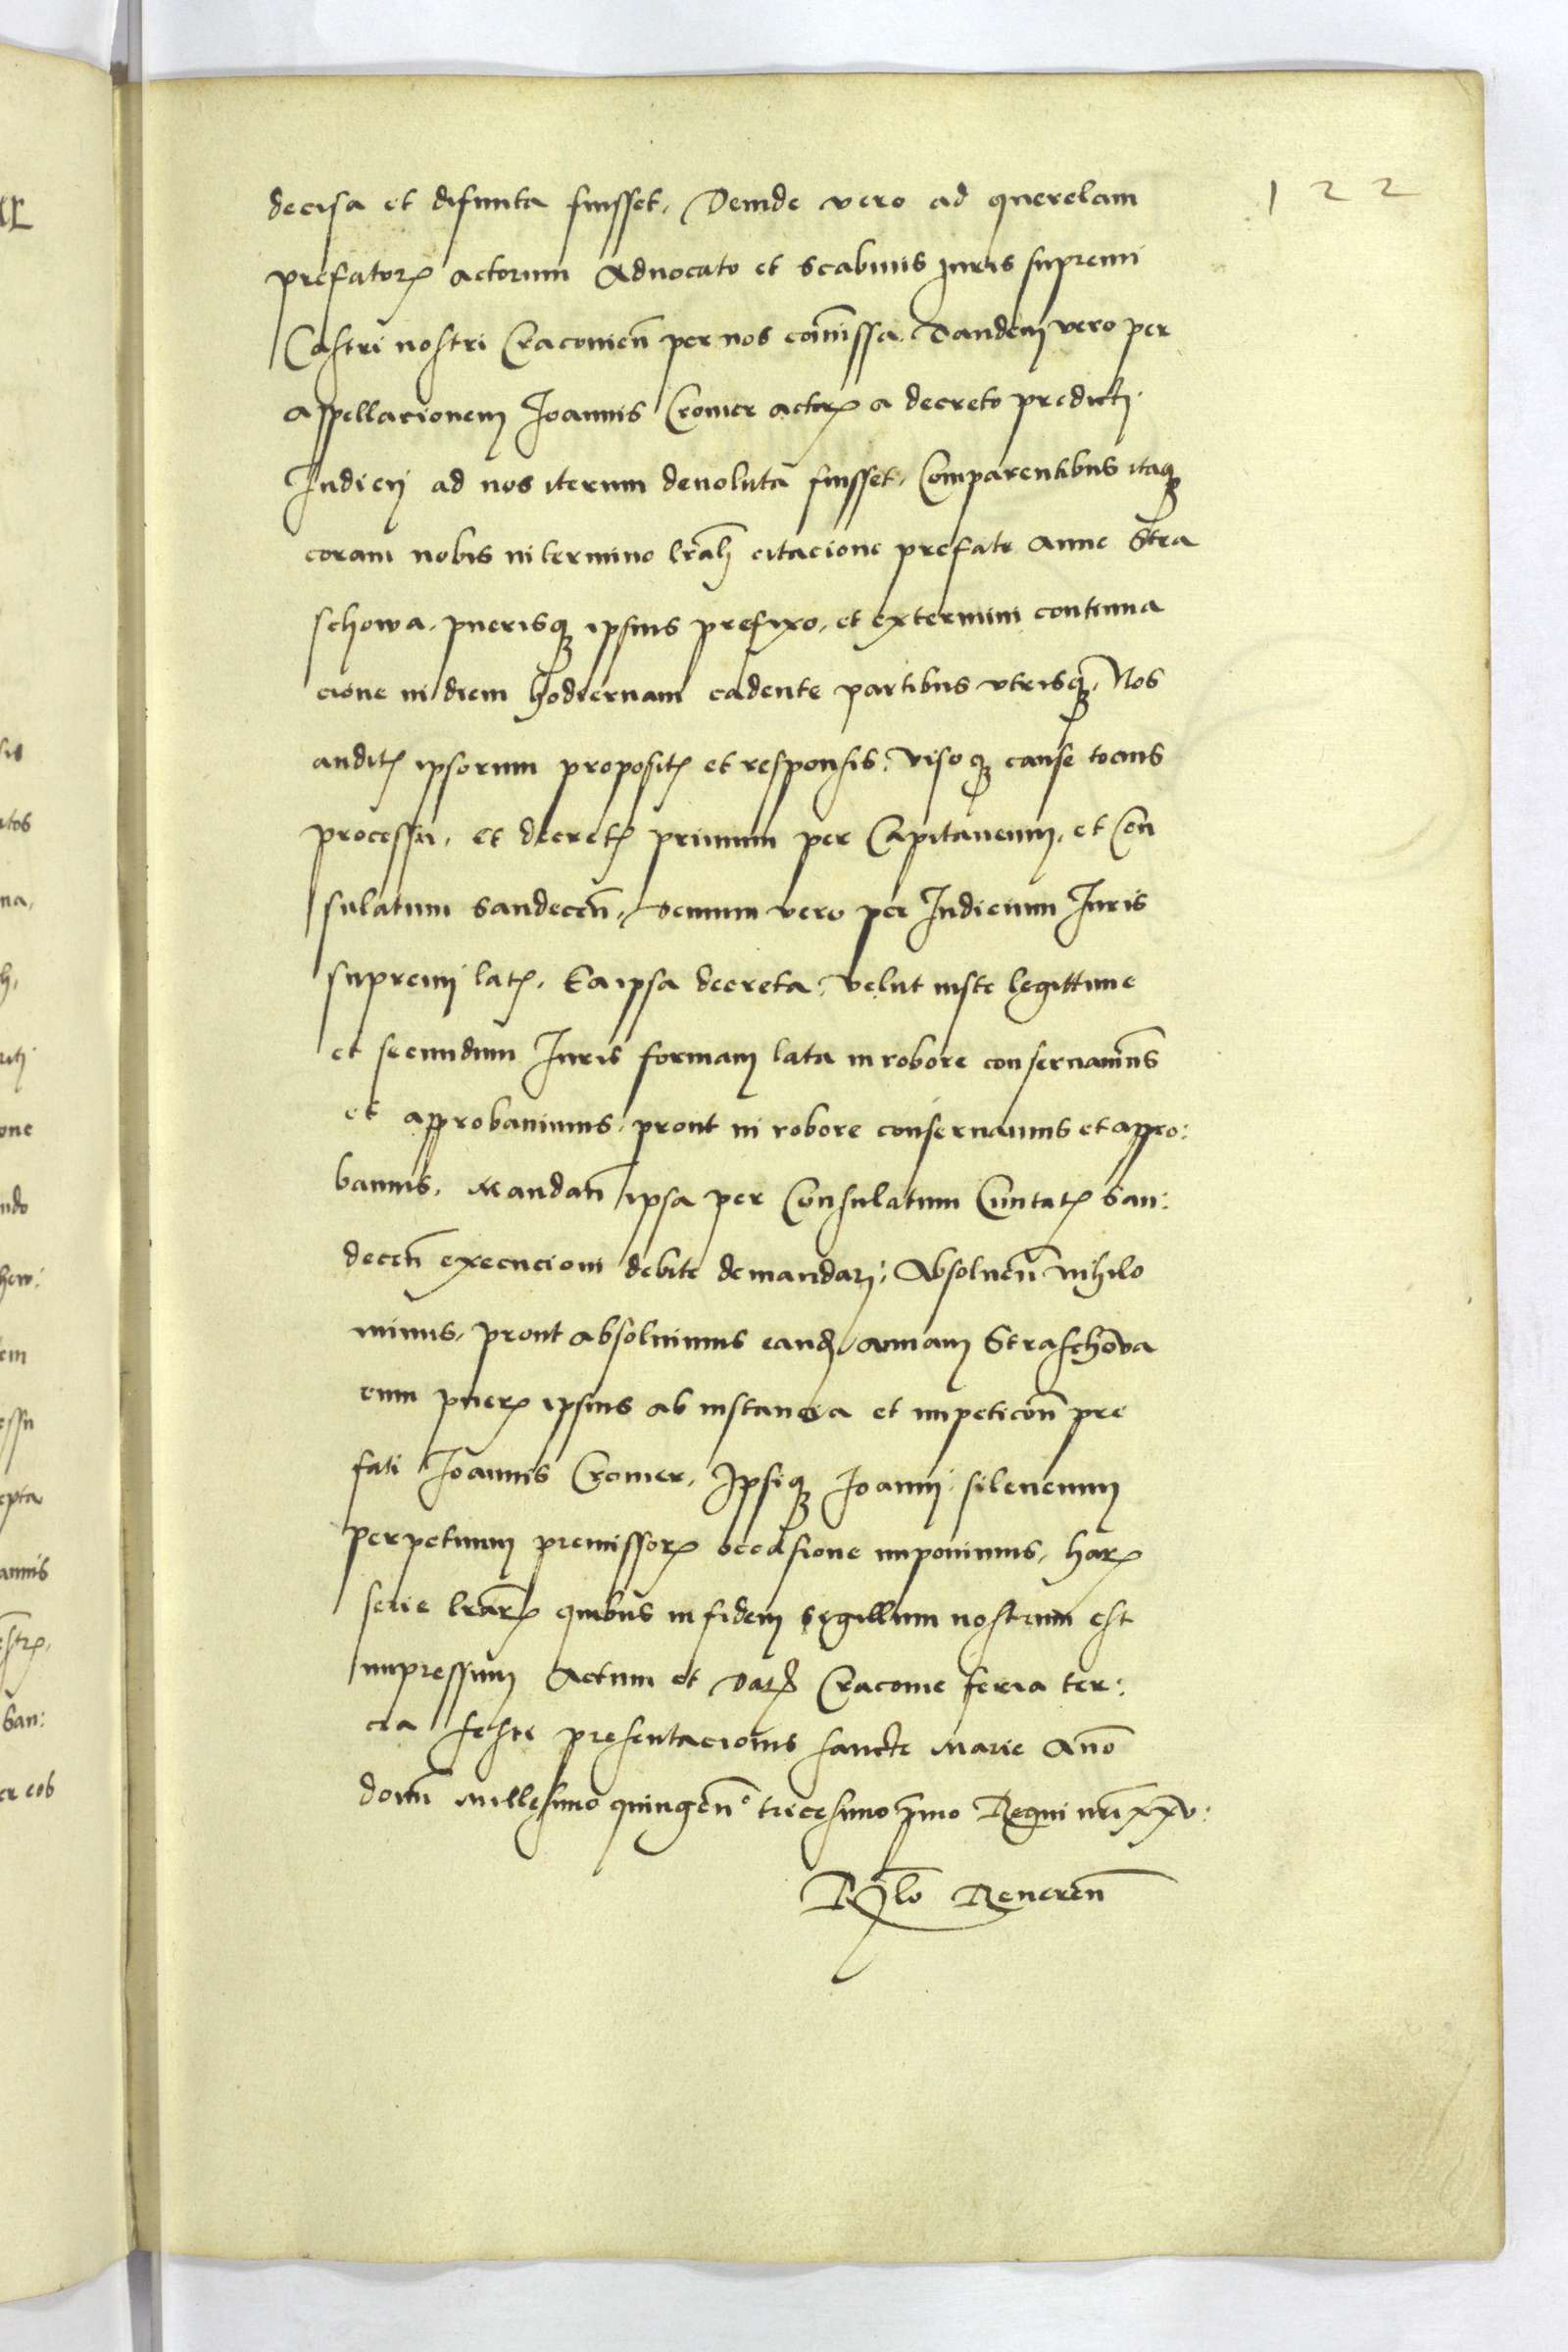 122
decisa et difinita fuisset, Deinde vero ad querelam
prefatorꝝ actorum Aduocato et Scabinis Juris supremi
Castri nostri Cracouień per nos com̄issa. Tandem vero per
appellacionem Joannis Cromer actorꝝ a decreto predicti
Judicij ad nos iterum deuoluta fuisset, Comparentibus itaqꝫ
coram nobis in termino citacione prefate Anne Stra
schowa, puerisqꝫ ipsius prefixo, et ex termini continua
cione in diem hodiernam cadente partibus vtrisqꝫ, Nos
auditꝭ ipsorum propositꝭ et responsis, Visoqꝫ cause tocius
processu, et decretꝭ primum per Capitaneum, et Con
sulatum Sandeceń, demum vero per Judicium Juris
supremi latꝭ, Ea ipsa decreta, velut iuste legittime
et secundum Juris formam lata in robore conseruauim̄s
et approbauimus, prout in robore conseruamus et appro:
bamus, Mandań ipsa per Consulatum Ciuitatꝭ San:
deceń execucioni debite demandari, Absolueń nihilo
minus, prout absoluimus eand̄ Annam Straschowa
cum puerꝭ ipsius ab instancia et impeticoń pre
fati Joannis Cromer, Ipsiqꝫ Joanni silencium
perpetuum premissorꝝ occasione imponimus, harꝝ
serie lrārꝝ quibus in fidem Sigillum nostrum est
impressum Actum et Datꝭ Cracouie feria ter:
cia festi presentacionis sancte Marie Anno
domī Millesimo quingeń° tricesimo pmo Regni nrī xxv:
Rlo Reueren̄